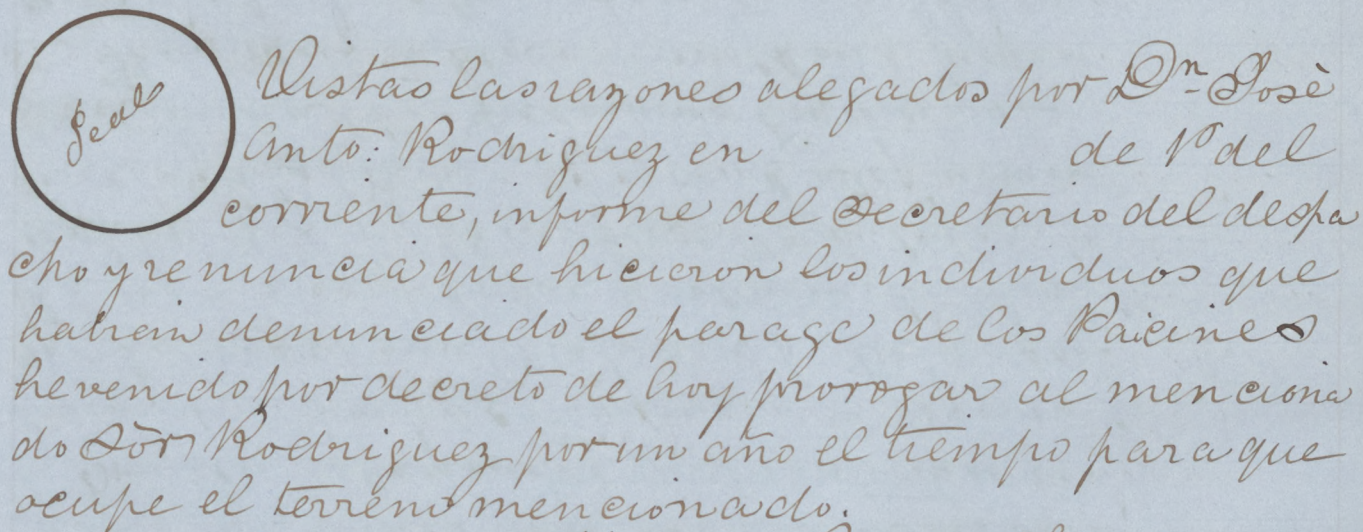 Seal
Vistas las razones alegados por Dn. José
Anto: Rodriguez en de 1o del
corriente, informe del secretario del despa
cho y renuncia que hicieron los individuos que
habian denunciado el parage de los Paicines
he venido por decreto de hoy prorogar al menciona
do Sör Rodriguez por un año el tiempo para que
ocupe el terreno mencionado.